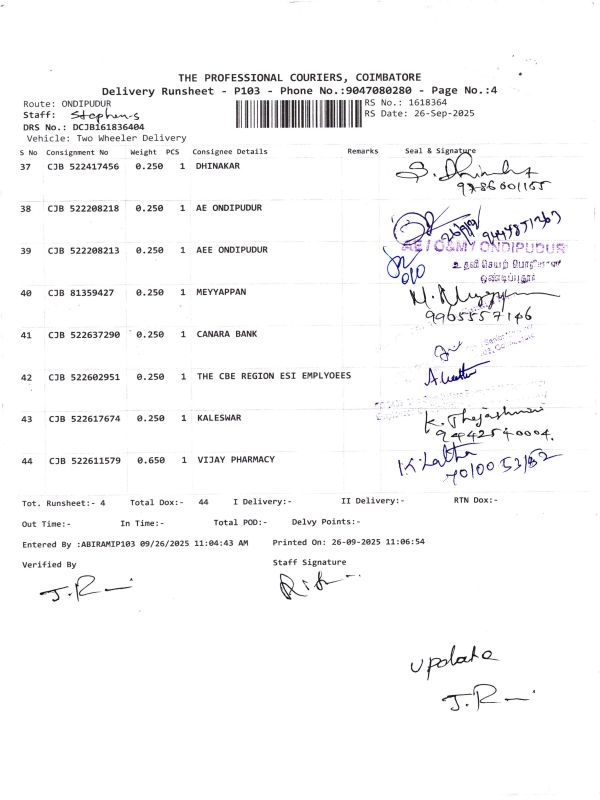 THE PROFESSIONAL COURIERS, COIMBATORE
Delivery Runsheet - P103 - Phone No.:9047080280 - Page No.:4
Route: ONDIPUDUR RS No.: 1618364
Staff: Stephens RS Date: 26-Sep-2025
DRS No.: DCJB161836404
Vehicle: Two Wheeler Delivery
S No Consignment No Weight PCS Consignee Details Remarks Seal & Signature
37 CJB 522417456 0.250 1 DHINAKAR
38 CJB 522208218 0.250 1 AE ONDIPUDUR
AE / O&M / ONDIPUDUR
39 CJB 522208213 0.250 1 AEE ONDIPUDUR
உதவி செயற் பொறியாளர்
ஒண்டிப்புதூர்
40 CJB 81359427 0.250 1 MEYYAPPAN
9965557146
41 CJB 522637290 0.250 1 CANARA BANK
42 CJB 522602951 0.250 1 THE CBE REGION ESI EMPLYOEES
43 CJB 522617674 0.250 1 KALESWAR
9442540004.
44 CJB 522611579 0.650 1 VIJAY PHARMACY K. Latha
Tot. Runsheet:- 4 Total Dox:- 44 I Delivery:- II Delivery:- RTN Dox:-
Out Time:- In Time:- Total POD:- Delvy Points:-
Entered By :ABIRAMIP103 09/26/2025 11:04:43 AM Printed On: 26-09-2025 11:06:54
Verified By Staff Signature
update